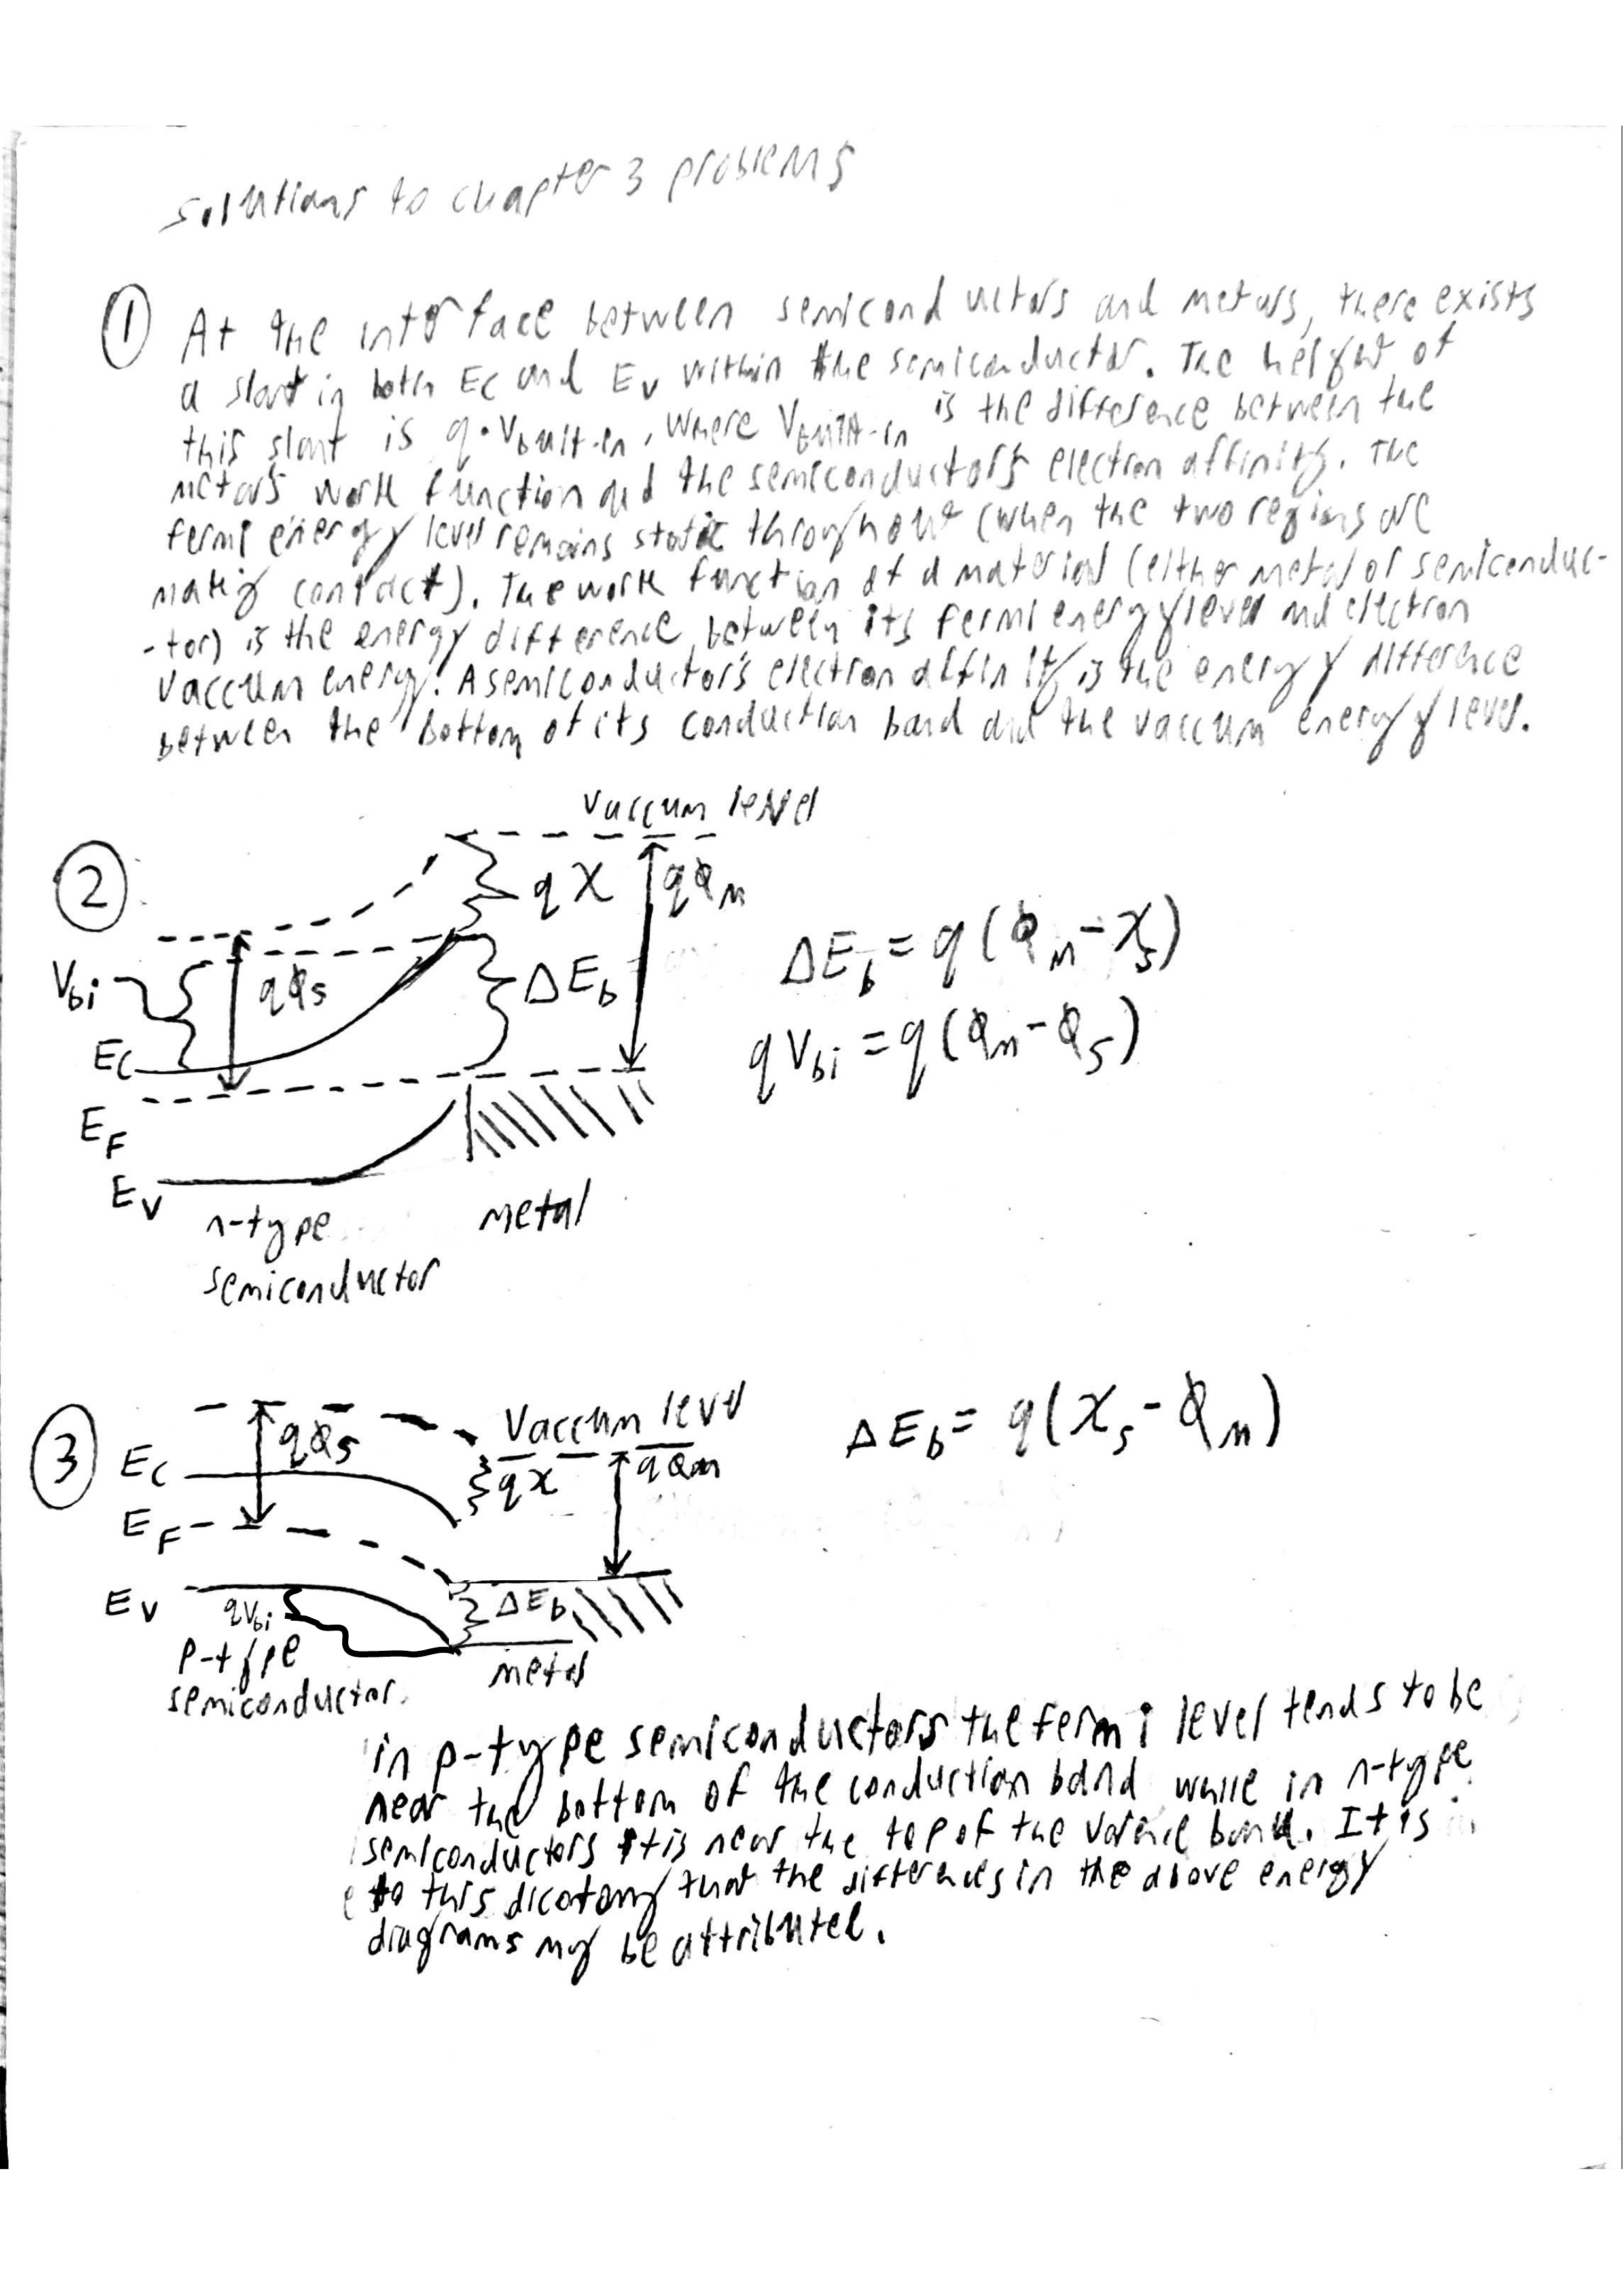 solutions to chapter 3 problems
① At the interface between semiconductors and metals, there exists
a slant in both Ec and Ev within the semiconductor. The height of
this slant is q·Vbuilt-in, where Vbuilt-in is the difference between the
metal's work function and the semiconductor's electron affinity. The
fermi energy level remains static throughout (when the two regions are
making contact). The work function of a material (either metal or semiconduc-
-tor) is the energy difference between its fermi energy level and electron
vaccum energy. A semiconductor's electron affinity is the energy difference
between the bottom of its conduction band and the vaccum energy level.
vaccum level
②
qχ
qΦM
Vbi
qΦs
ΔEb
Ec
EF
Ev
n-type
semiconductor
metal
ΔEb = q(ΦM - χs)
qVbi = q(Φm - Φs)
③
Vaccum level
qΦs
Ec
qχ
qΦm
EF
Ev
qVbi
ΔEb
p-type
semiconductor
metal
ΔEb = q(χs - Φm)
in p-type semiconductors the fermi level tends to be
near the bottom of the conduction band while in n-type
semiconductors it is near the top of the valence band. It is
to this dicotomy that the differences in the above energy
diagrams may be attributed.